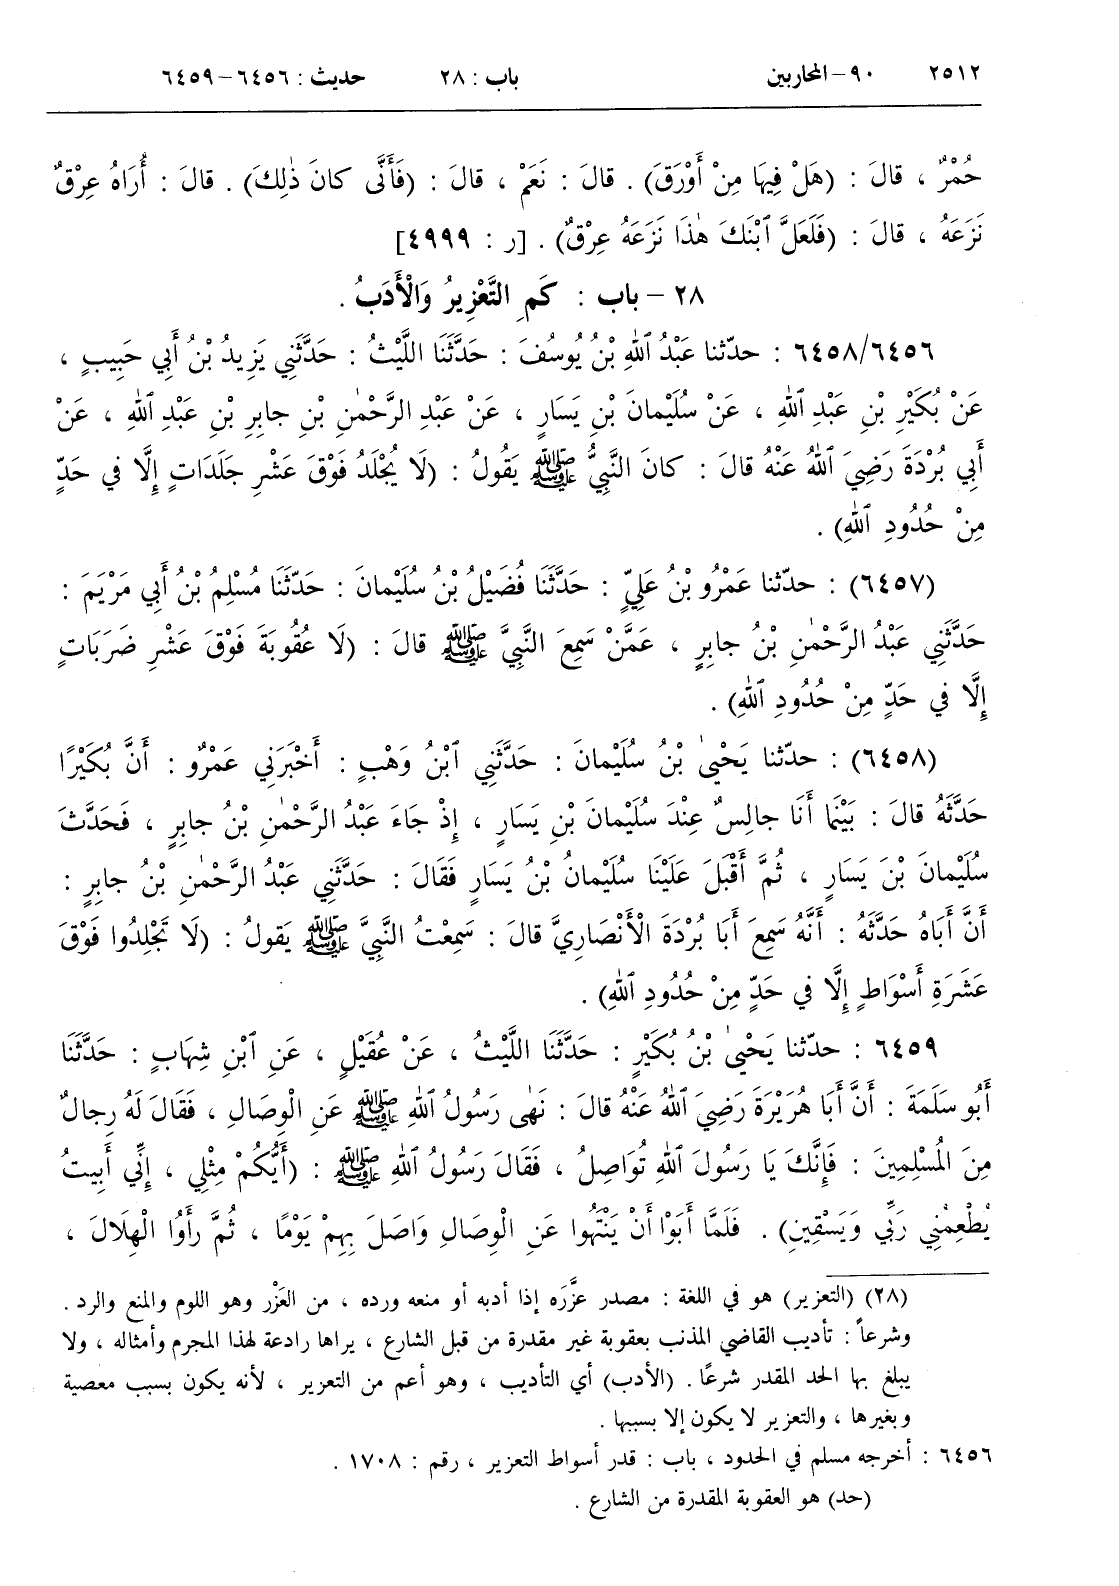 ٢٥١٢ ٩٠-المحاربين باب : ٢٨ حديث : ٦٤٥٦-٦٤٥٩
حُمْرٌ ، قالَ : (هَلْ فِيهَا مِنْ أَوْرَقَ) . قالَ : نَعَمْ ، قالَ : (فَأَنَّى كانَ ذٰلِكَ) . قالَ : أُرَاهُ عِرْقٌ
نَزَعَهُ ، قالَ : (فَلَعَلَّ ٱبْنَكَ هٰذَا نَزَعَهُ عِرْقٌ) . [ر : ٤٩٩٩]
٢٨ – باب : كَمِ التَّعْزِيرُ وَالْأَدَبُ .
٦٤٥٨/٦٤٥٦ : حدّثنا عَبْدُ ٱللهِ بْنُ يُوسُفَ : حَدَّثَنَا اللَّيْثُ : حَدَّثَنِي يَزِيدُ بْنُ أَبِي حَبِيبٍ ،
عَنْ بُكَيْرِ بْنِ عَبْدِ ٱللهِ ، عَنْ سُلَيْمانَ بْنِ يَسَارٍ ، عَنْ عَبْدِ الرَّحْمٰنِ بْنِ جابِرِ بْنِ عَبْدِ ٱللهِ ، عَنْ
أَبِي بُرْدَةَ رَضِيَ ٱللهُ عَنْهُ قالَ : كانَ النَّبِيُّ ﷺ يَقُولُ : (لَا يُجْلَدُ فَوْقَ عَشْرِ جَلَدَاتٍ إِلَّا في حَدٍّ
مِنْ حُدُودِ ٱللهِ) .
(٦٤٥٧) : حدّثنا عَمْرُو بْنُ عَلِيٍّ : حَدَّثَنَا فُضَيْلُ بْنُ سُلَيْمانَ : حَدّثَنَا مُسْلِمُ بْنُ أَبِي مَرْيَمَ :
حَدَّثَنِي عَبْدُ الرَّحْمٰنِ بْنُ جابِرٍ ، عَمَّنْ سَمِعَ النَّبِيَّ ﷺ قالَ : (لَا عُقُوبَةَ فَوْقَ عَشْرِ ضَرَبَاتٍ
إِلَّا في حَدٍّ مِنْ حُدُودِ ٱللهِ) .
(٦٤٥٨) : حدّثنا يَحْيىٰ بْنُ سُلَيْمانَ : حَدَّثَنِي ٱبْنُ وَهْبٍ : أَخْبَرَنِي عَمْرٌو : أَنَّ بُكَيْرًا
حَدَّثَهُ قالَ : بَيْنَمَا أَنَا جالِسٌ عِنْدَ سُلَيْمانَ بْنِ يَسَارٍ ، إِذْ جَاءَ عَبْدُ الرَّحْمٰنِ بْنُ جابِرٍ ، فَحَدَّثَ
سُلَيْمانَ بْنَ يَسَارٍ ، ثُمَّ أَقْبَلَ عَلَيْنَا سُلَيْمانُ بْنُ يَسَارٍ فَقَالَ : حَدَّثَنِي عَبْدُ الرَّحْمٰنِ بْنُ جابِرٍ :
أَنَّ أَبَاهُ حَدَّثَهُ : أَنَّهُ سَمِعَ أَبَا بُرْدَةَ الْأَنْصَارِيَّ قالَ : سَمِعْتُ النَّبِيَّ ﷺ يَقولُ : (لَا تَجْلِدُوا فَوْقَ
عَشَرَةِ أَسْوَاطٍ إِلَّا في حَدٍّ مِنْ حُدُودِ ٱللهِ) .
٦٤٥٩ : حدّثنا يَحْيىٰ بْنُ بُكَيْرٍ : حَدَّثَنَا اللَّيْثُ ، عَنْ عُقَيْلٍ ، عَنِ ٱبْنِ شِهَابٍ : حَدَّثَنَا
أَبُو سَلَمَةَ : أَنَّ أَبَا هُرَيْرَةَ رَضِيَ ٱللهُ عَنْهُ قالَ : نَهٰى رَسُولُ ٱللهِ ﷺ عَنِ الْوِصَالِ ، فَقَالَ لَهُ رِجالٌ
مِنَ الْمُسْلِمِينَ : فَإِنَّكَ يَا رَسُولَ ٱللهِ تُوَاصِلُ ، فَقَالَ رَسُولُ ٱللهِ ﷺ : (أَيُّكُمْ مِثْلِي ، إِنِّي أَبِيتُ
يُطْعِمُنِي رَبِّي وَيَسْقِينِ) . فَلَمَّا أَبَوْا أَنْ يَنْتَهُوا عَنِ الْوِصَالِ وَاصَلَ بِهِمْ يَوْمًا ، ثُمَّ رَأَوُا الْهِلَالَ ،
(٢٨) (التعزير) هو في اللغة : مصدر عزَّرَه إذا أدبه أو منعه ورده ، من العَزْر وهو اللوم والمنع والرد .
وشرعاً : تأديب القاضي المذنب بعقوبة غير مقدرة من قبل الشارع ، يراها رادعة لهذا المجرم وأمثاله ، ولا
يبلغ بها الحد المقدر شرعًا . (الأدب) أي التأديب ، وهو أعم من التعزير ، لأنه يكون بسبب معصية
وبغيرها ، والتعزير لا يكون إلا بسببها .
٦٤٥٦ : أخرجه مسلم في الحدود ، باب : قدر أسواط التعزير ، رقم : ١٧٠٨ .
(حد) هو العقوبة المقدرة من الشارع .